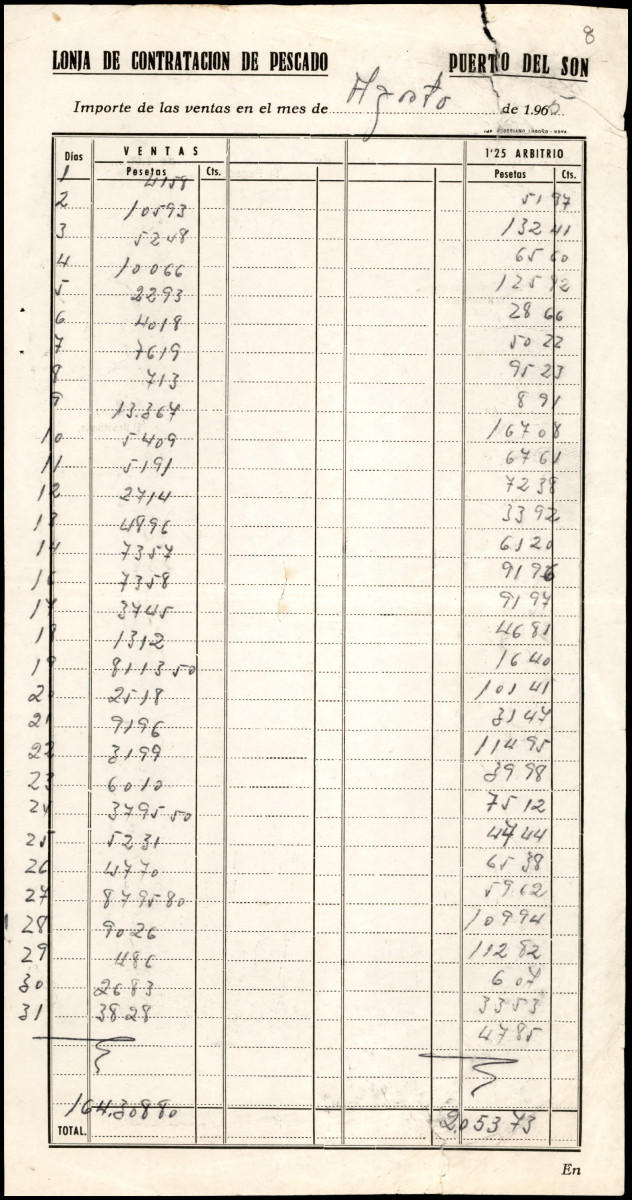 8
LONJA DE CONTRATACION DE PESCADO PUERTO DEL SON
Importe de las ventas en el mes de Agosto de 1.965
Días VENTAS 1'25 ARBITRIO
Pesetas Cts. Pesetas Cts.
1 4158 51 97
2 10593 132 41
3 5248 65 60
4 10066 125 82
5 2293 28 66
6 4018 50 22
7 7619 95 23
8 713 8 91
9 13.367 167 08
10 5409 67 61
11 5191 72 38
12 2714 33 92
13 4896 61 20
14 7357 91 96
16 7358 91 97
17 3745 46 81
18 1312 16 40
19 8113 50 101 41
20 2518 31 47
21 9196 114 95
22 3199 39 98
23 6010 75 12
24 3795 50 47 44
25 5231 65 38
26 4770 59 62
27 8795 80 109 94
28 9026 112 82
29 486 6 07
30 2683 33 53
31 3828 47 85
TOTAL. 164.308 80 2.053 73
En